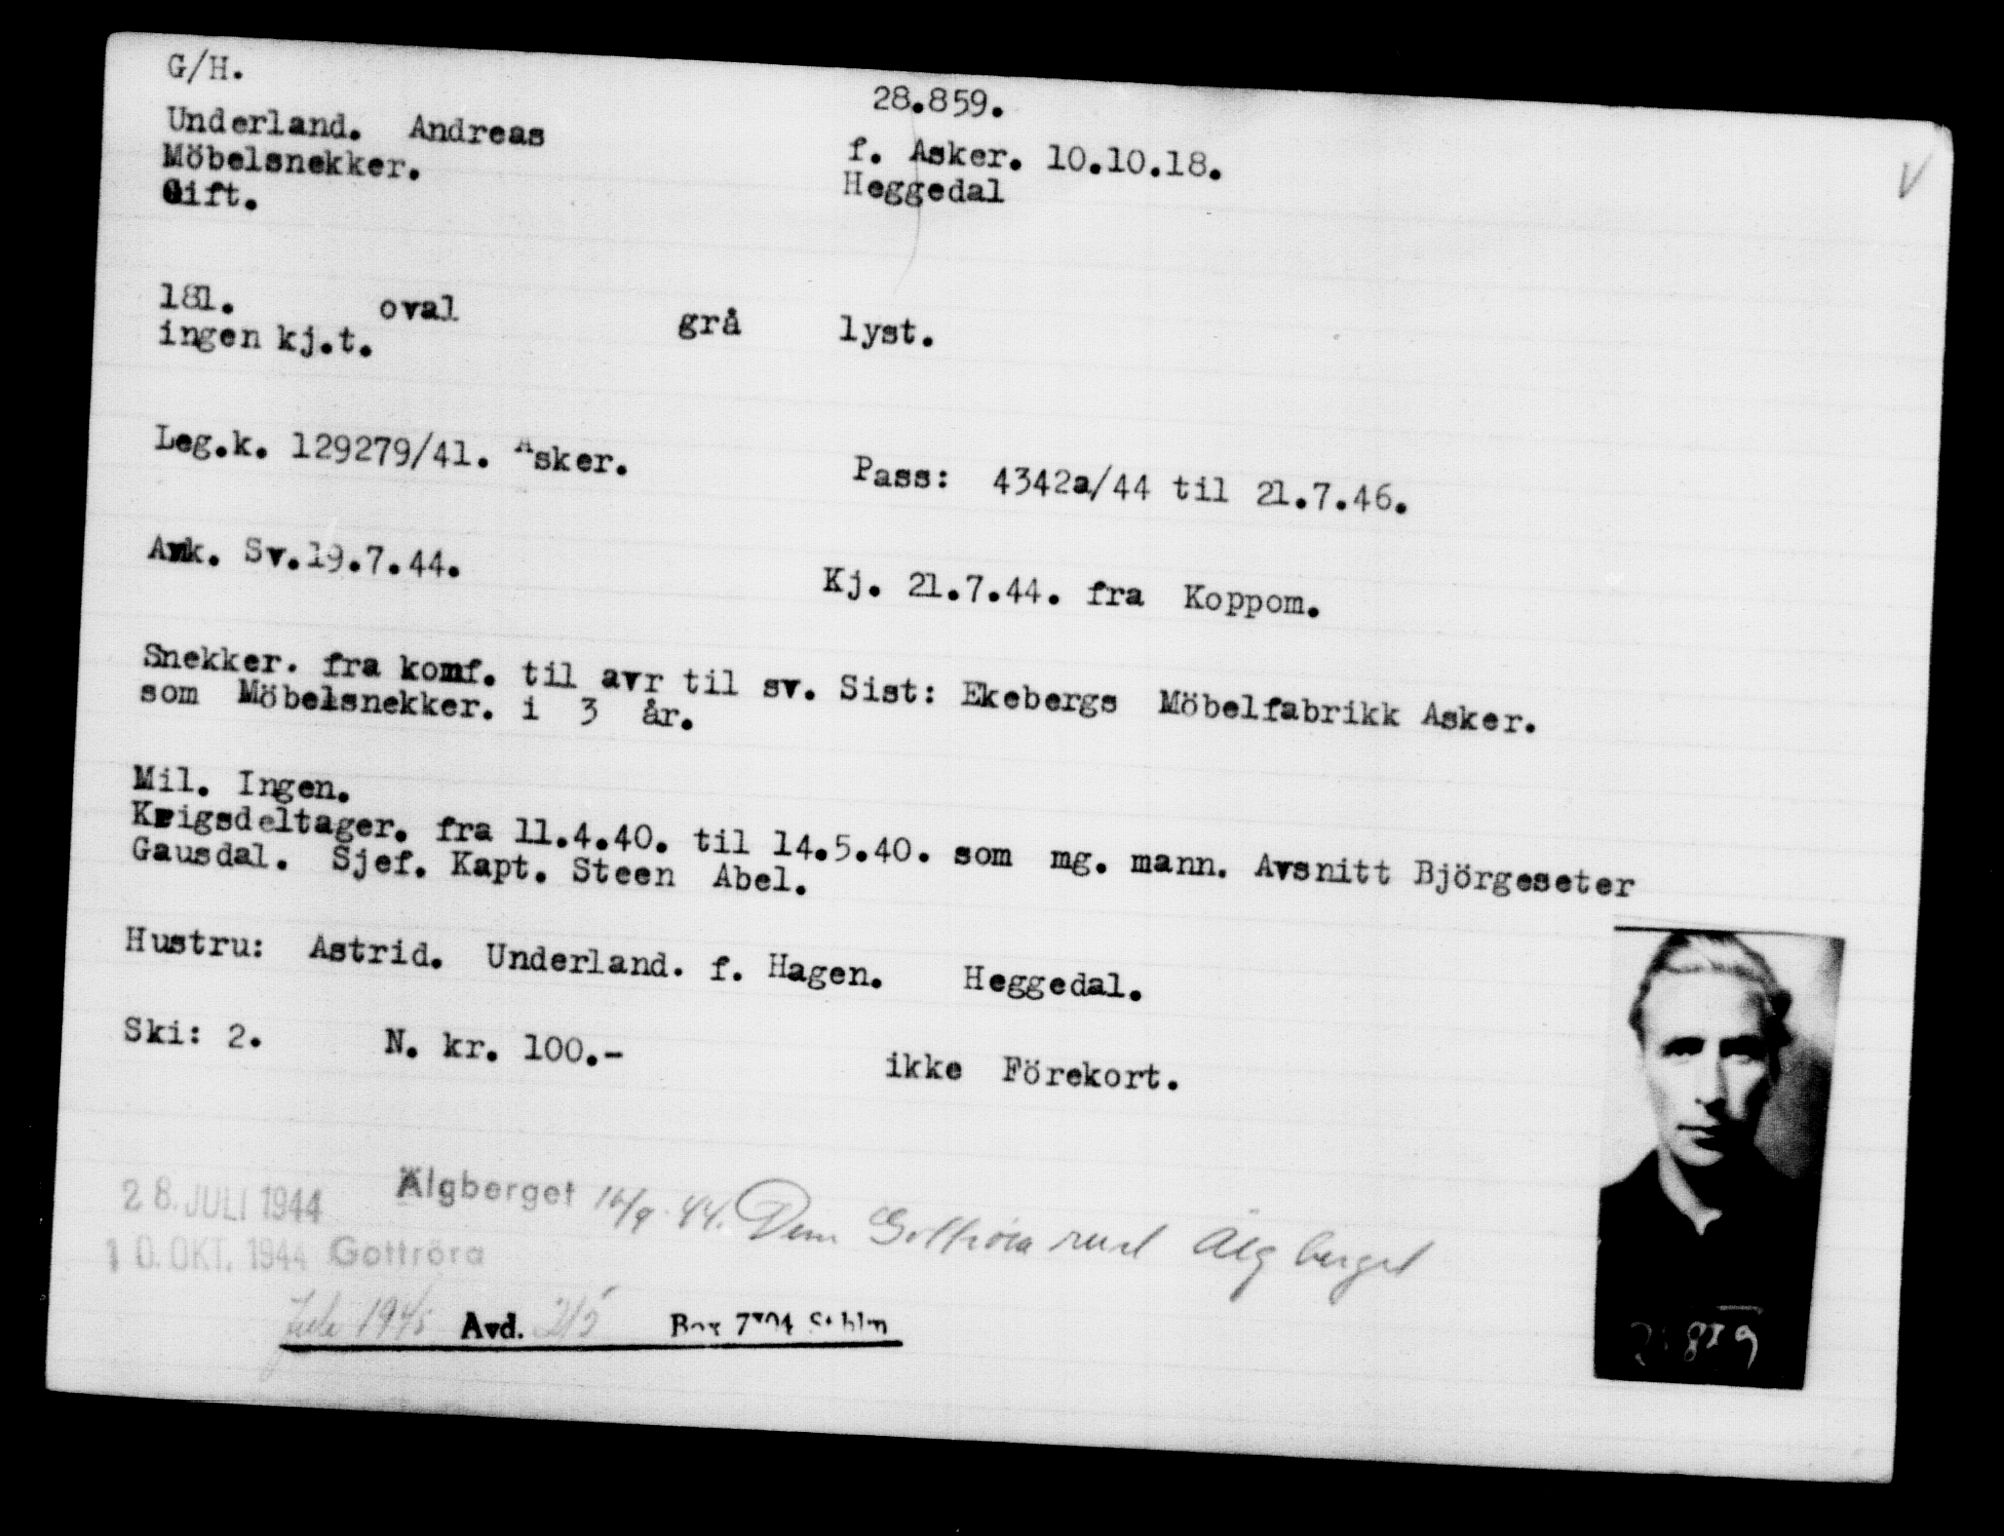 G/H.
28.859.
Underland. Andreas
f. Asker. 10.10.18.
Möbelsnekker.
Heggedal
Gift.
181. oval grå lyst.
ingen kj.t.
Leg.k. 129279/41. Asker.
Pass: 4342a/44 til 21.7.46.
Ank. Sv.19.7.44.
Kj. 21.7.44. fra Koppom.
Snekker. fra komf. til avr til sv. Sist: Ekebergs Möbelfabrikk Asker.
som Möbelsnekker. i 3 år.
Mil. Ingen.
Krigsdeltager. fra 11.4.40. til 14.5.40. som mg. mann. Avsnitt Björgeseter
Gausdal. Sjef. Kapt. Steen Abel.
Hustru: Astrid. Underland. f. Hagen. Heggedal.
Ski: 2. N. kr. 100.-
ikke Förekort.
28. JULI 1944 Älgberget 16/9-44. Dim Gottröra Älgberget
10. OKT. 1944 Gottröra
Juli 1945 Avd. Box Sthlm